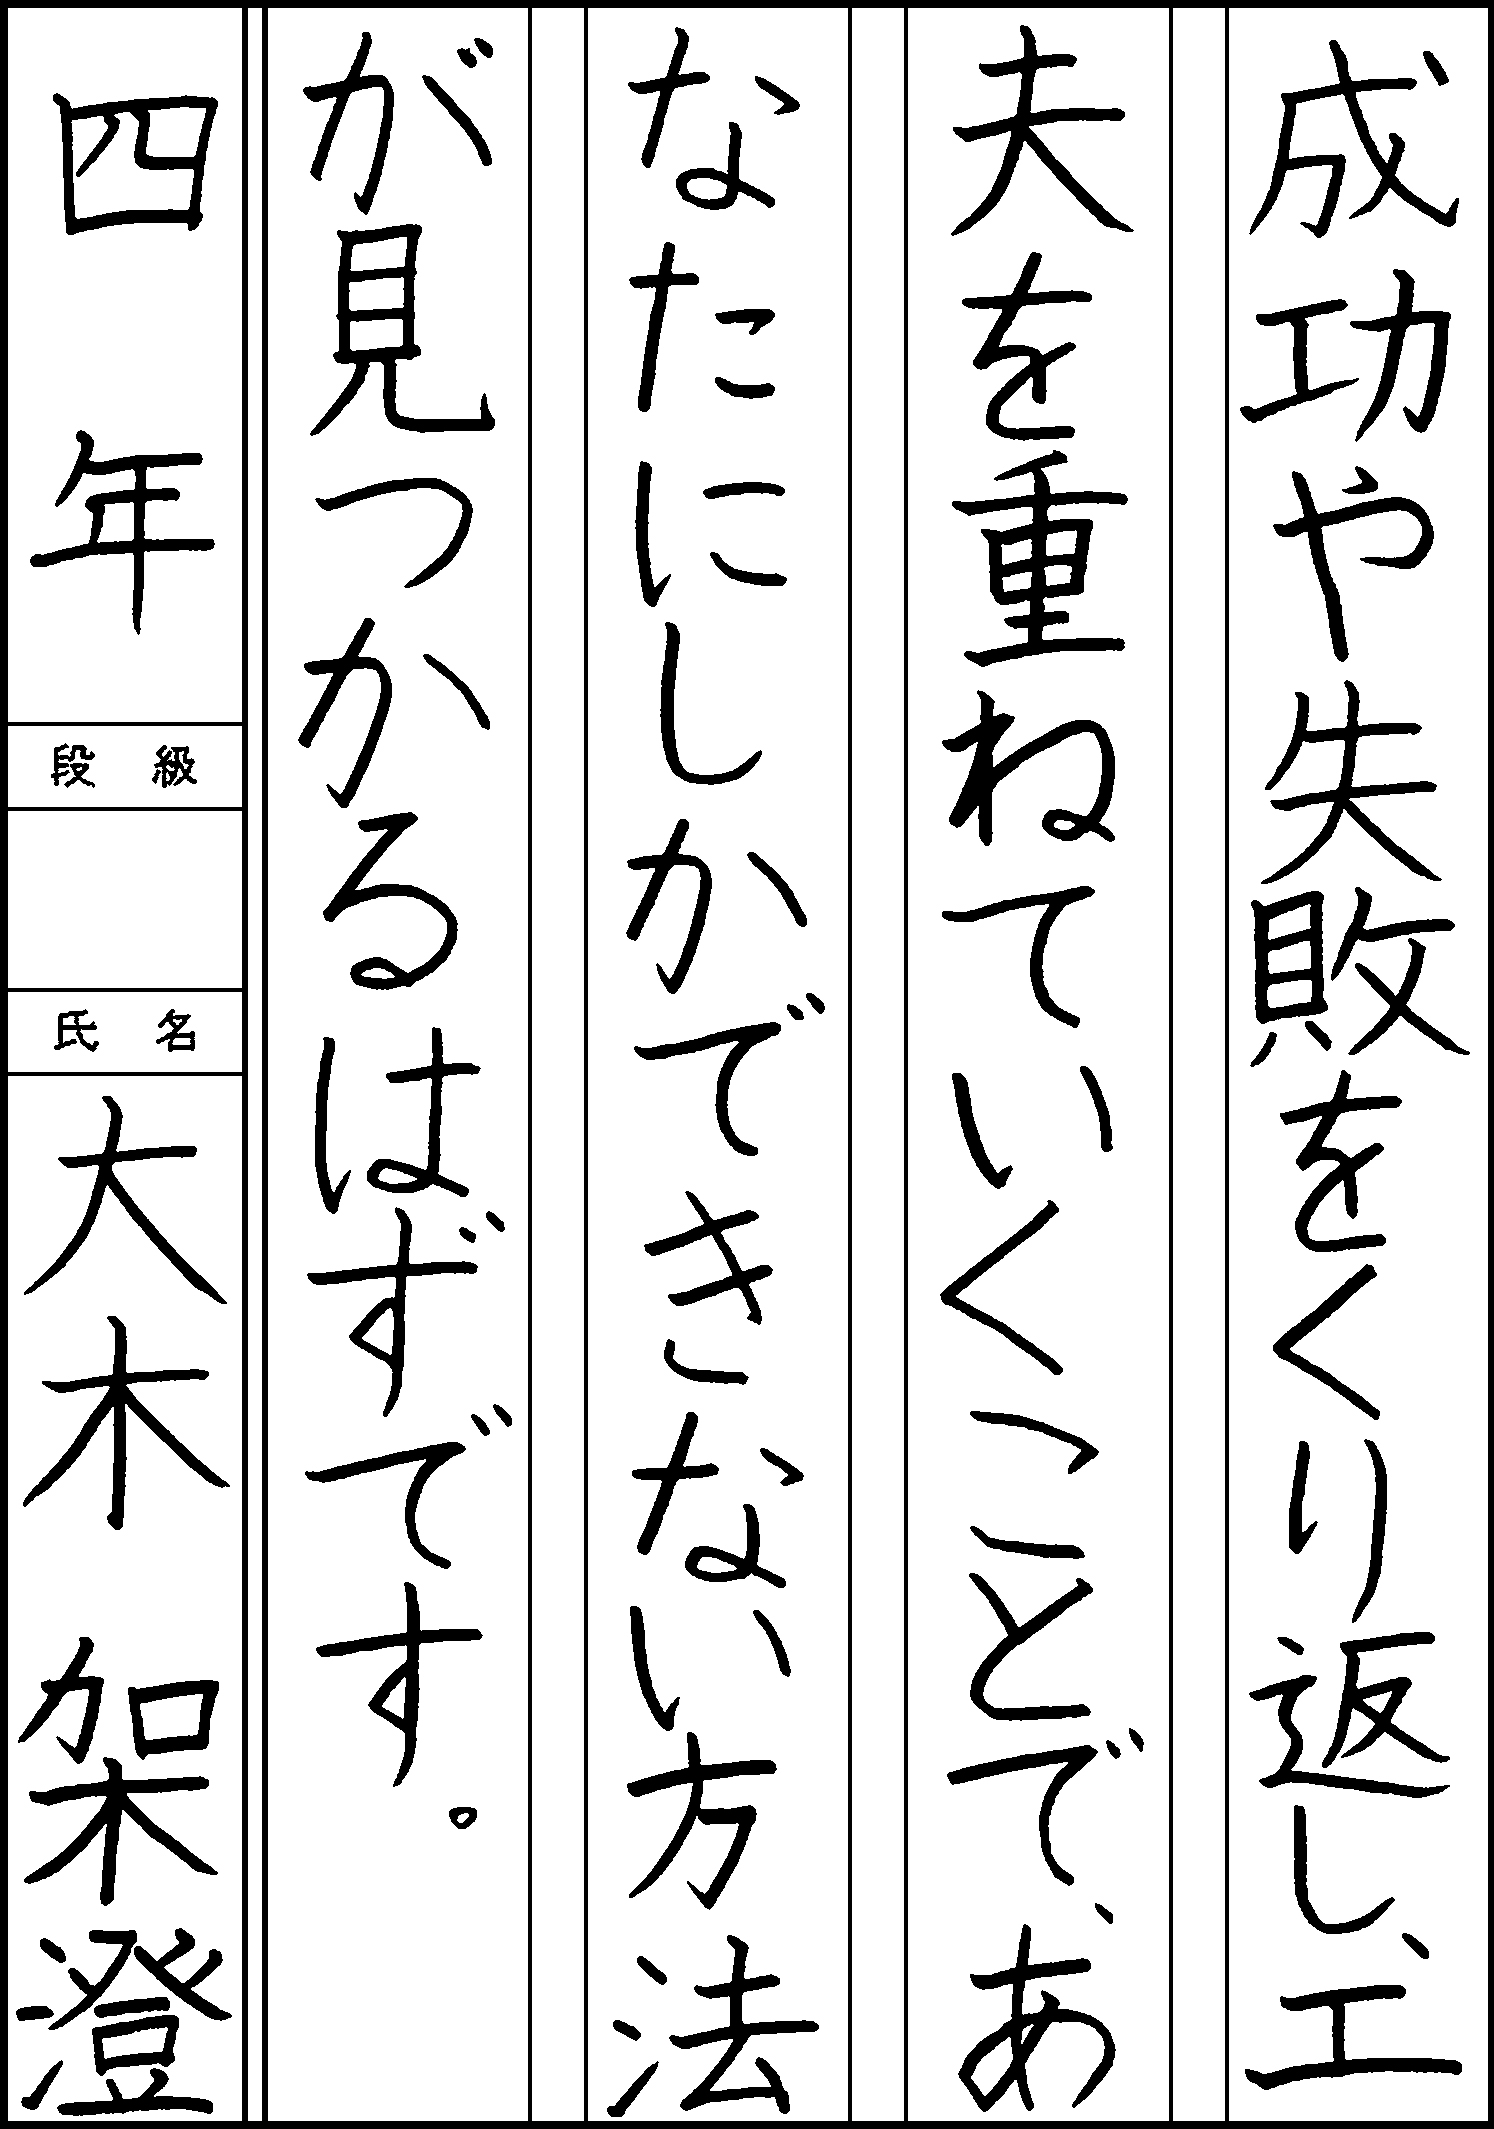 成功や失敗をくり返し、工
夫を重ねていくことで、あ
なたにしかできない方法
が見つかるはずです。
四年
級段
名氏
大木架澄